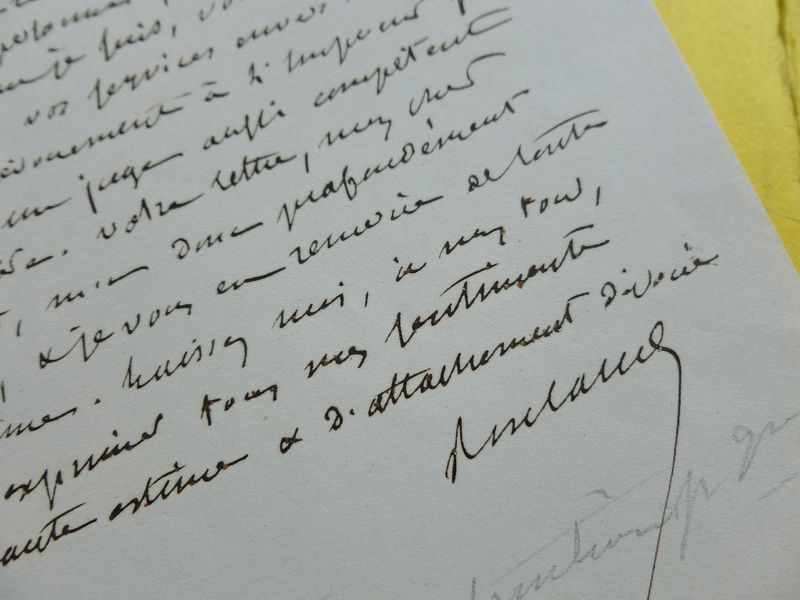 je puis, vo
vos services envers
évouement à l'Empereur p
un juge aussi compétent
votre lettre, mon cher
, m'a donc profondément
, & je vous en remercie de toute
âme. Laissez moi, à mon tour,
exprimer tous mes sentiments
haute estime & d'attachement dévoué